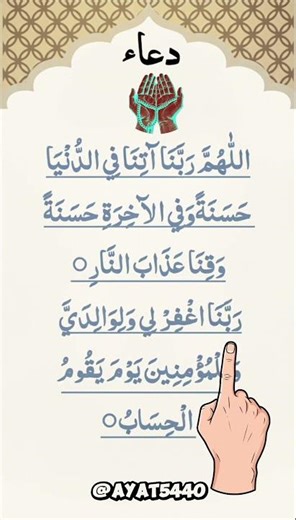 دعاء
اللّٰهُمَّ رَبَّنَا آتِنَا فِي الدُّنْيَا
حَسَنَةً وَفِي الآخِرَةِ حَسَنَةً
وَقِنَا عَذَابَ النَّارِ ○
رَبَّنَا اغْفِرْ لِي وَلِوَالِدَيَّ
وَلِلْمُؤْمِنِينَ يَوْمَ يَقُومُ
الْحِسَابُ ○
@AYAT5440